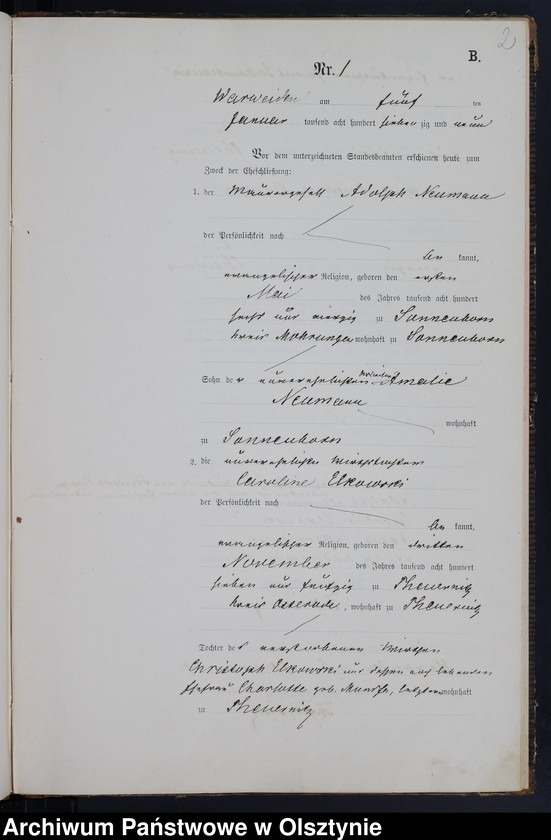 2
B.
Nr. 1
Warweiden am fünf ten
Januar tausend acht hundert sieben zig und neun
Vor dem unterzeichneten Standesbeamten erschienen heute zum
Zweck der Eheschließung:
1. der Maurergesell Adolph Neumann
der Persönlichkeit nach
be kannt,
evangelischer Religion, geboren den ersten
Mai des Jahres tausend acht hundert
sechs und vierzig zu Sonnenborn
Kreis Mohrungen wohnhaft zu Sonnenborn
Sohn der unverehelichten Amalie
Neumann
wohnhaft
zu Sonnenborn
2. die unverehelichte Wirthstochter
Caroline Elkowski
der Persönlichkeit nach
be kannt,
evangelischer Religion, geboren den dritten
November des Jahres tausend acht hundert
sieben und fünfzig zu Theuernitz
Kreis Osterode, wohnhaft zu Theuernitz
Tochter des verstorbenen Wirthen
Christoph Elkowski und dessen noch lebenden
Ehefrau Charlotte geb. letztere wohnhaft
zu Theuernitz
Archiwum Państwowe w Olsztynie